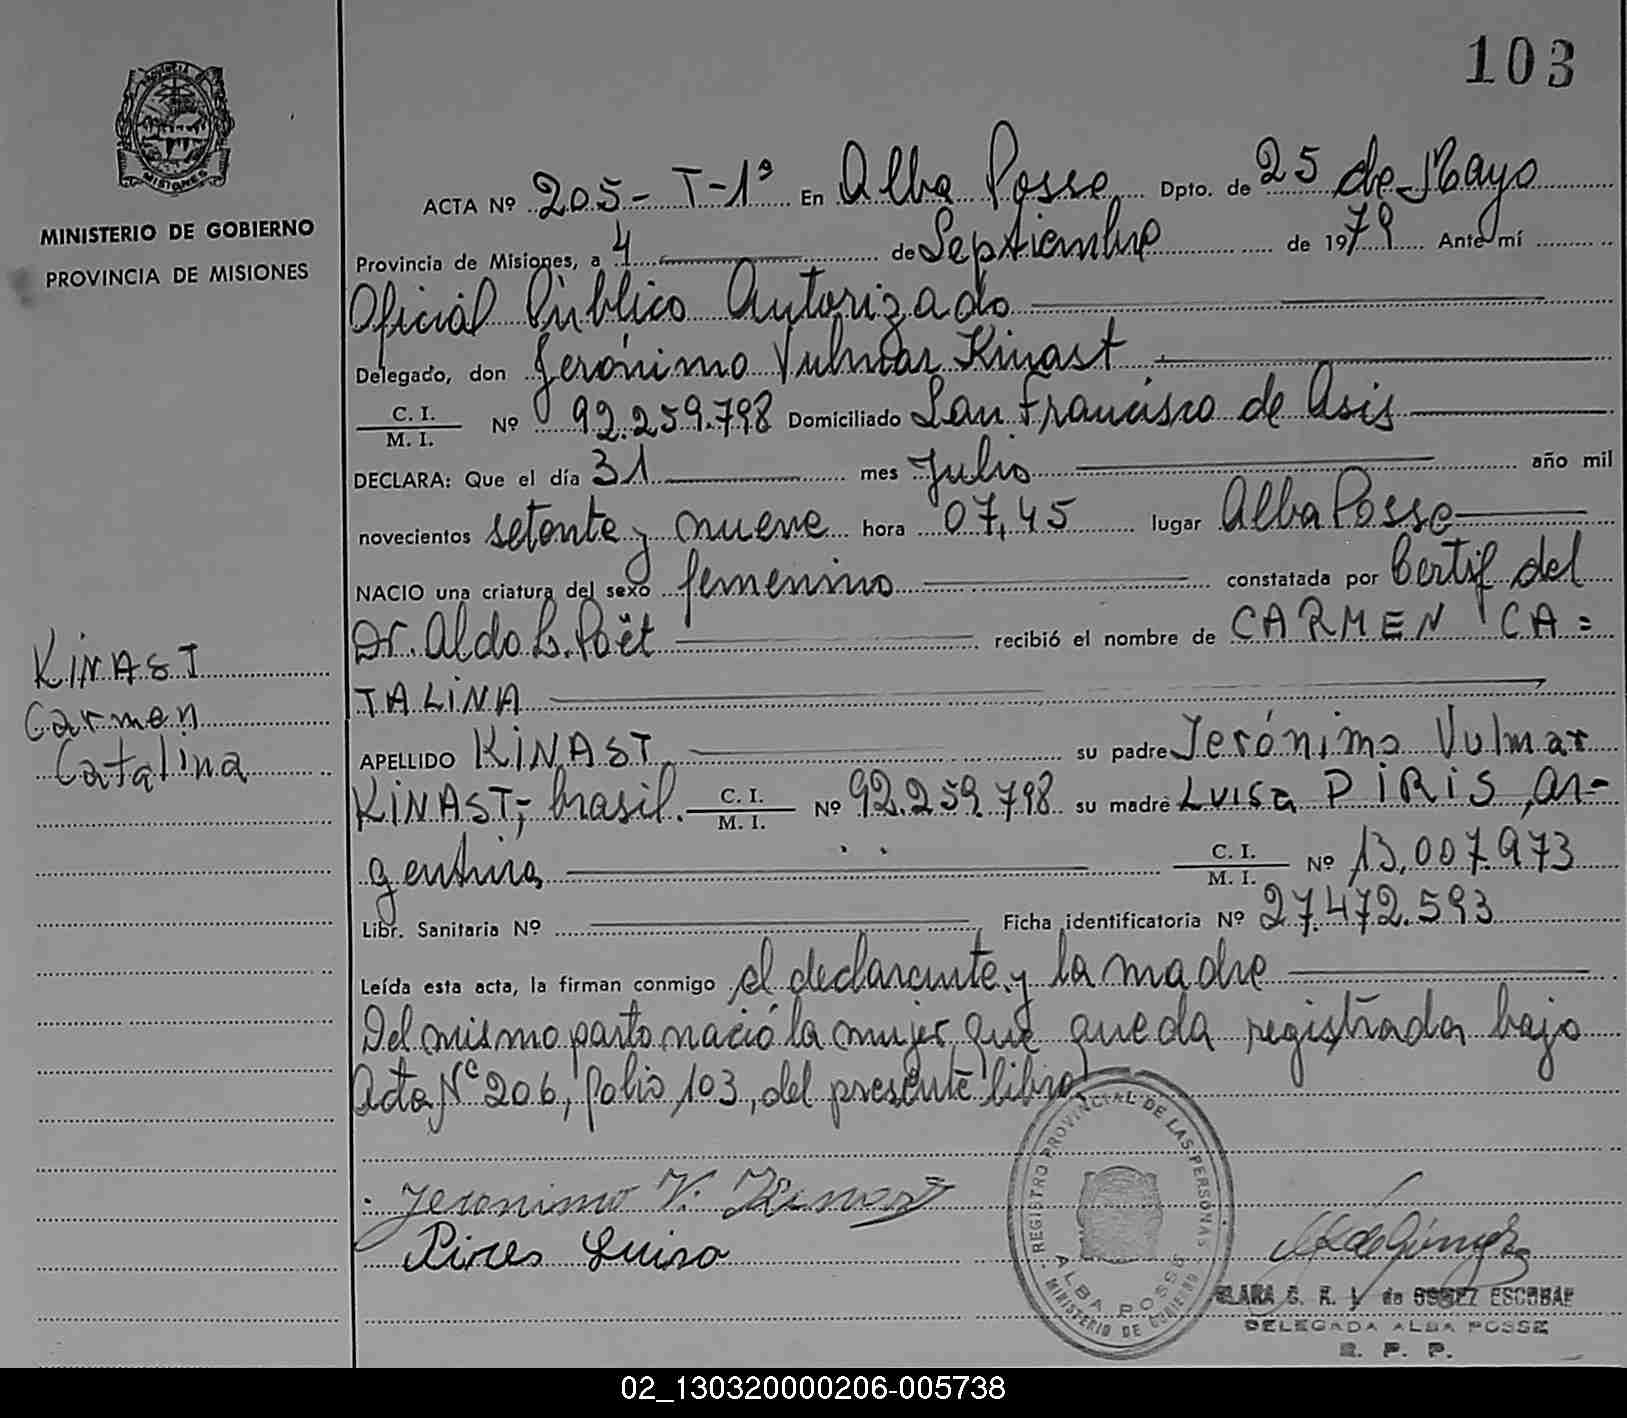 103
PROVINCIA DE
MISIONES
MINISTERIO DE GOBIERNO
PROVINCIA DE MISIONES
ACTA Nº 205- T-1ª En Alba Posse Dpto. de 25 de Mayo
Provincia de Misiones, a 4 de Septiembre de 1979 Ante mí
Oficial Público Autorizado
Delegado, don Jerónimo Vulmar Kinast
C. I.
M. I. Nº 92.259.798 Domiciliado San Francisco de Asis
DECLARA: Que el día 31 mes Julio año mil
novecientos setenta y nueve hora 07,45 lugar Alba Posse
NACIO una criatura del sexo femenino constatada por Certif del
Dr. Aldo L. Poët recibió el nombre de CARMEN CA=
TALINA
APELLIDO KINAST su padre Jerónimo Vulmar
KINAST, brasil. C. I.
M. I. Nº 92.259.798 su madre Luisa PIRIS, ar-
gentina C. I.
M. I. Nº 13.007.973
Libr. Sanitaria Nº Ficha identificatoria Nº 27.472.593
Leída esta acta, la firman conmigo el declarante y la madre
Del mismo parto nació la mujer que queda registrada bajo
Acta Nº 206, folio 103, del presente libro
KINAST
Carmen
Catalina
Jeronimo V. Kinast
Pires Luisa
REGISTRO PROVINCIAL DE LAS PERSONAS
ALBA POSSE
MINISTERIO DE GOBIERNO
CLARA de GOMEZ ESCOBAR
DELEGADA ALBA POSSE
R. P. P.
02_130320000206-005738